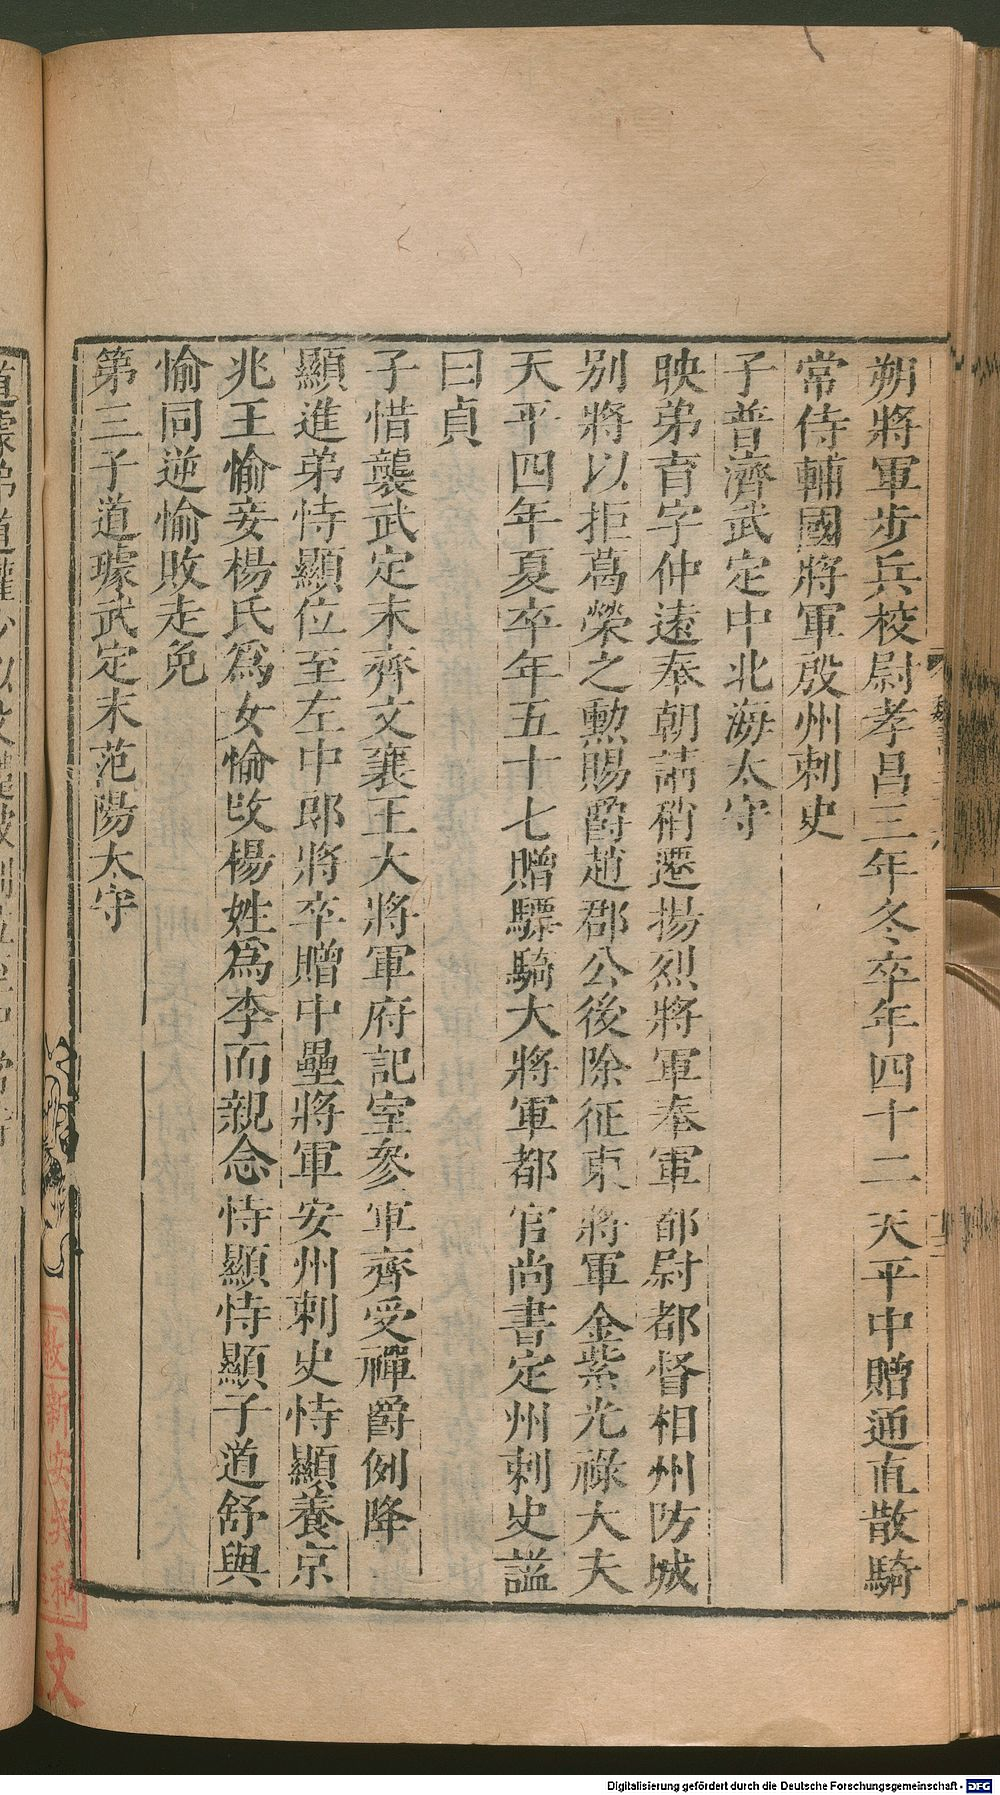 朔將軍步兵校尉孝昌三年冬卒年四十二天平中贈通直散騎
常侍輔國將軍殷州刺史
子普濟武定中北海太守
映弟育字仲遠奉朝請稍遷揚烈將軍奉車都尉都督相州防城
别將以拒葛榮之勲賜爵趙郡公後除征東將軍金紫光祿大夫
天平四年夏卒年五十七贈驃騎大將軍都官尚書定州刺史謚
曰貞
子惜襲武定末齊文襄王大將軍府記室參軍齊受禪爵例降
顯進弟恃顯位至左中郎將卒贈中壘將軍安州刺史恃顯養京
兆王愉妾楊氏爲女愉改楊姓爲李而親念恃顯恃顯子道舒與
愉同逆愉敗走免
第三子道璩武定末范陽太守
Digitalisierung gefördert durch die Deutsche Forschungsgemeinschaft - DFG